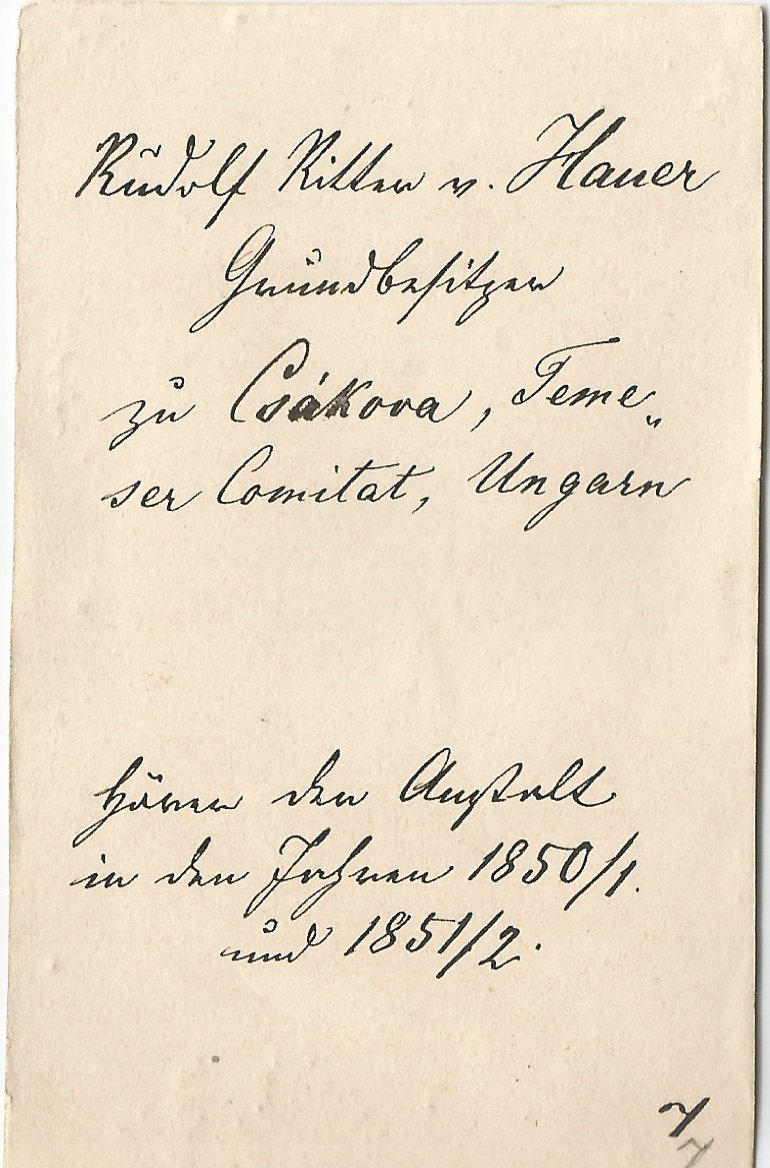 Rudolf Ritter v. Hauer
Grundbesitzer
zu Csákova, Teme„
ser Comitat, Ungarn
Hörer der Anstalt
in den Jahren 1850/1.
und 1851/2.
7
7